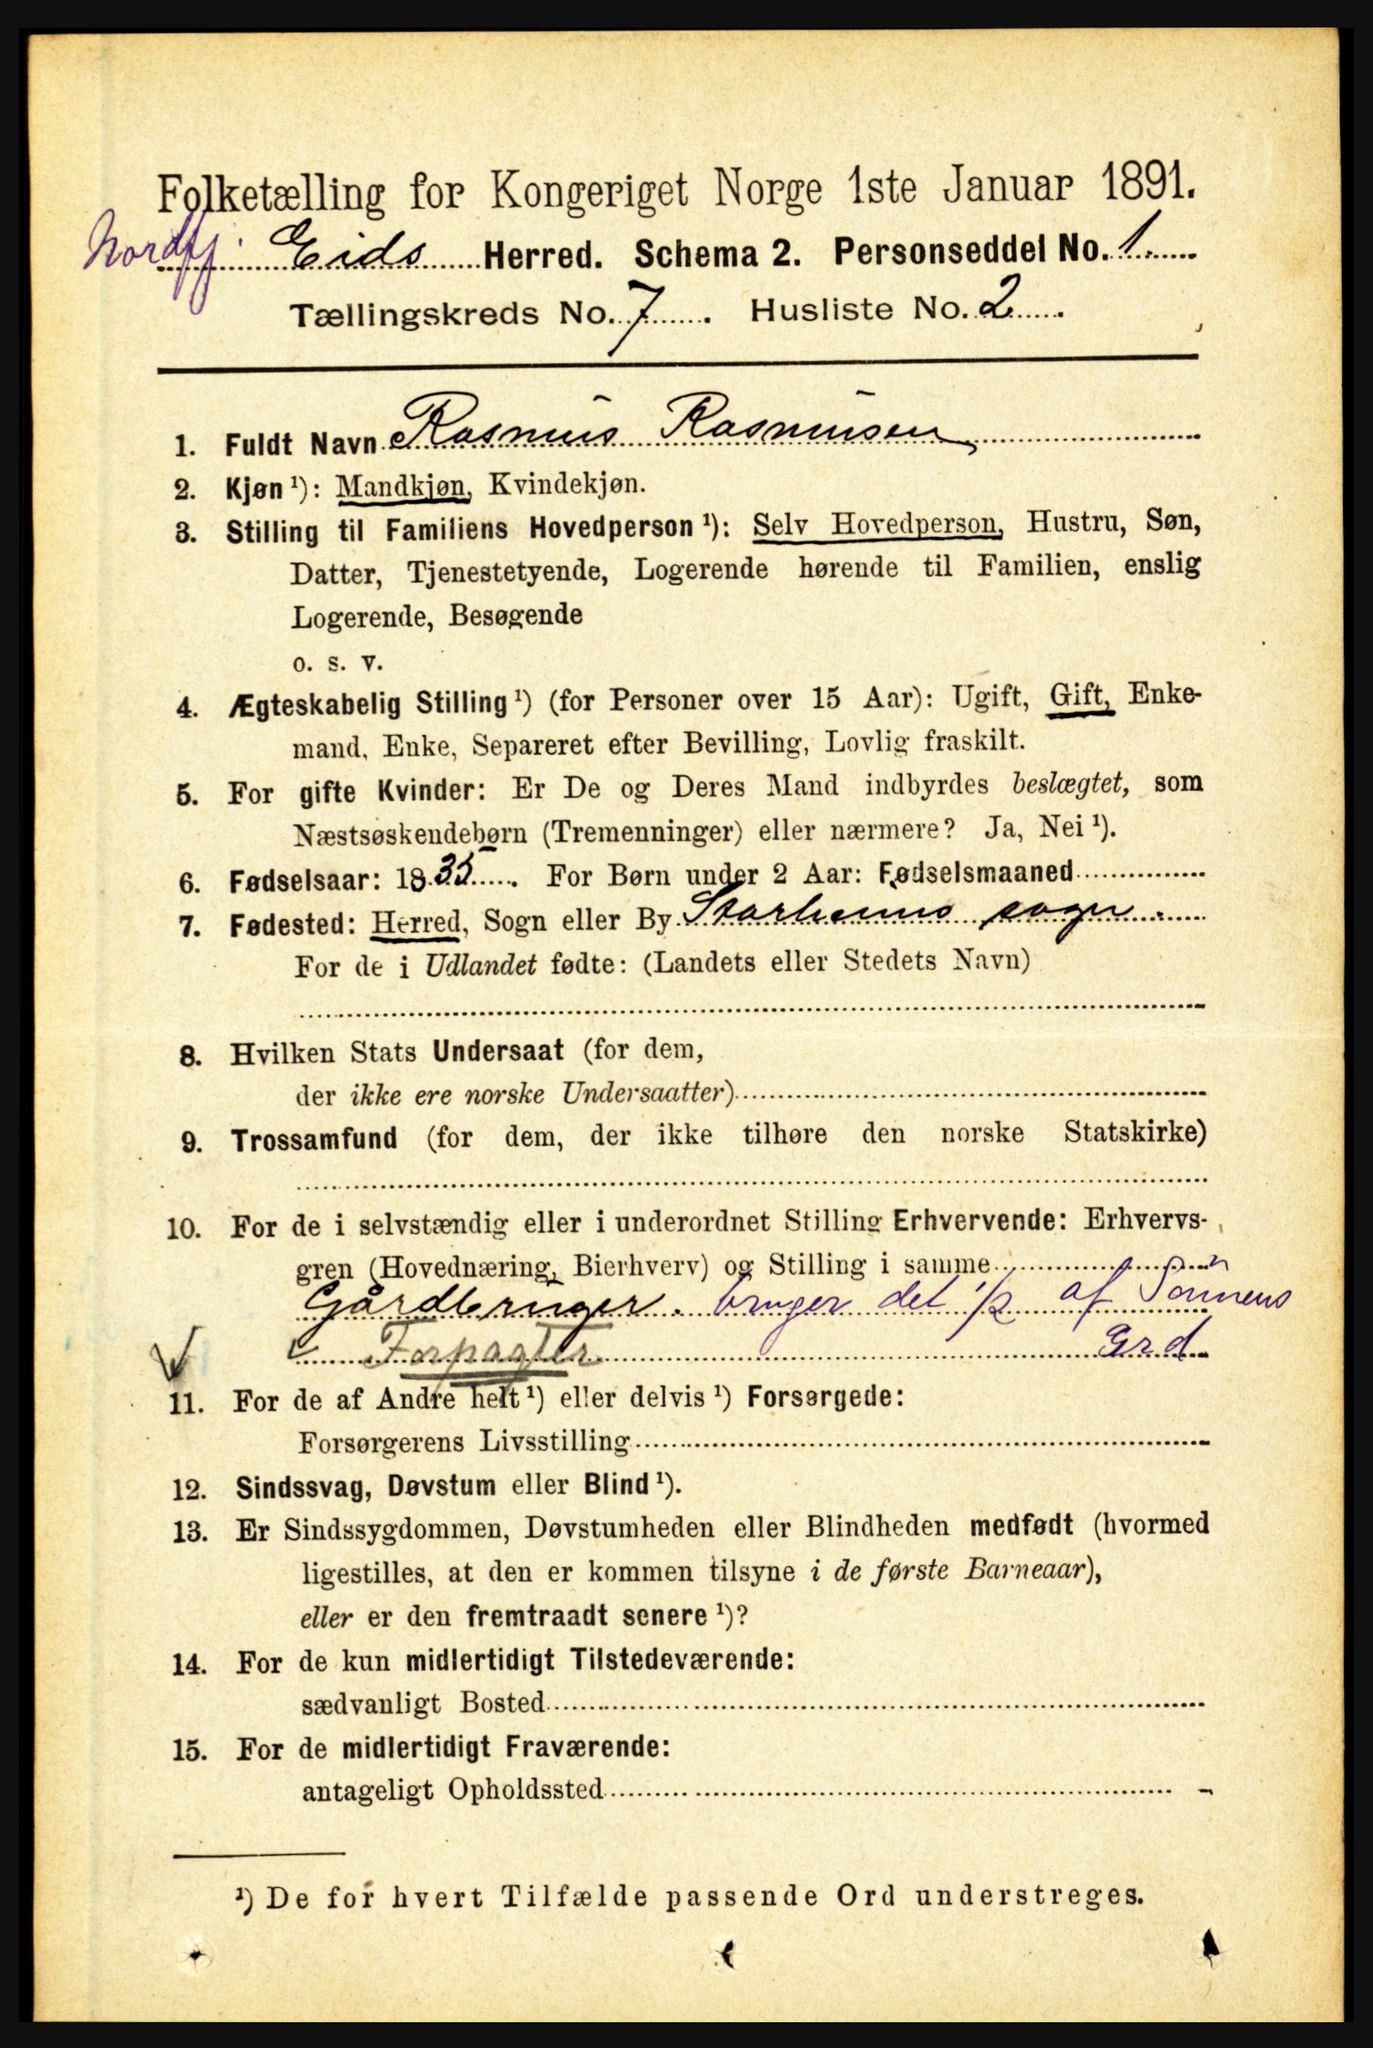 Folketælling for Kongeriget Norge 1ste Januar 1891.
Nordfj. Eids Herred. Schema 2. Personseddel No. 1.
Tællingskreds No. 7. Husliste No. 2.
1. Fuldt Navn Rasmus Rasmusen
2. Kjøn ¹): Mandkjøn, Kvindekjøn.
3. Stilling til Familiens Hovedperson ¹): Selv Hovedperson, Hustru, Søn,
Datter, Tjenestetyende, Logerende hørende til Familien, enslig
Logerende, Besøgende
o. s. v.
4. Ægteskabelig Stilling ¹) (for Personer over 15 Aar): Ugift, Gift, Enke-
mand, Enke, Separeret efter Bevilling, Lovlig fraskilt.
5. For gifte Kvinder: Er De og Deres Mand indbyrdes beslægtet, som
Næstsøskendebørn (Tremenninger) eller nærmere? Ja, Nei ¹).
6. Fødselsaar: 1835. For Børn under 2 Aar: Fødselsmaaned
7. Fødested: Herred, Sogn eller By Starheims sogn.
For de i Udlandet fødte: (Landets eller Stedets Navn)
8. Hvilken Stats Undersaat (for dem,
der ikke ere norske Undersaatter)
9. Trossamfund (for dem, der ikke tilhøre den norske Statskirke)
10. For de i selvstændig eller i underordnet Stilling Erhvervende: Erhvervs-
gren (Hovednæring, Bierhverv) og Stilling i samme
Gårdbruger. bruger det 1/2 af Sönnens
Forpagter Grd
11. For de af Andre helt ¹) eller delvis ¹) Forsørgede:
Forsørgerens Livsstilling
12. Sindssvag, Døvstum eller Blind ¹).
13. Er Sindssygdommen, Døvstumheden eller Blindheden medfødt (hvormed
ligestilles, at den er kommen tilsyne i de første Barneaar),
eller er den fremtraadt senere ¹)?
14. For de kun midlertidigt Tilstedeværende:
sædvanligt Bosted
15. For de midlertidigt Fraværende:
antageligt Opholdssted
¹) De for hvert Tilfælde passende Ord understreges.